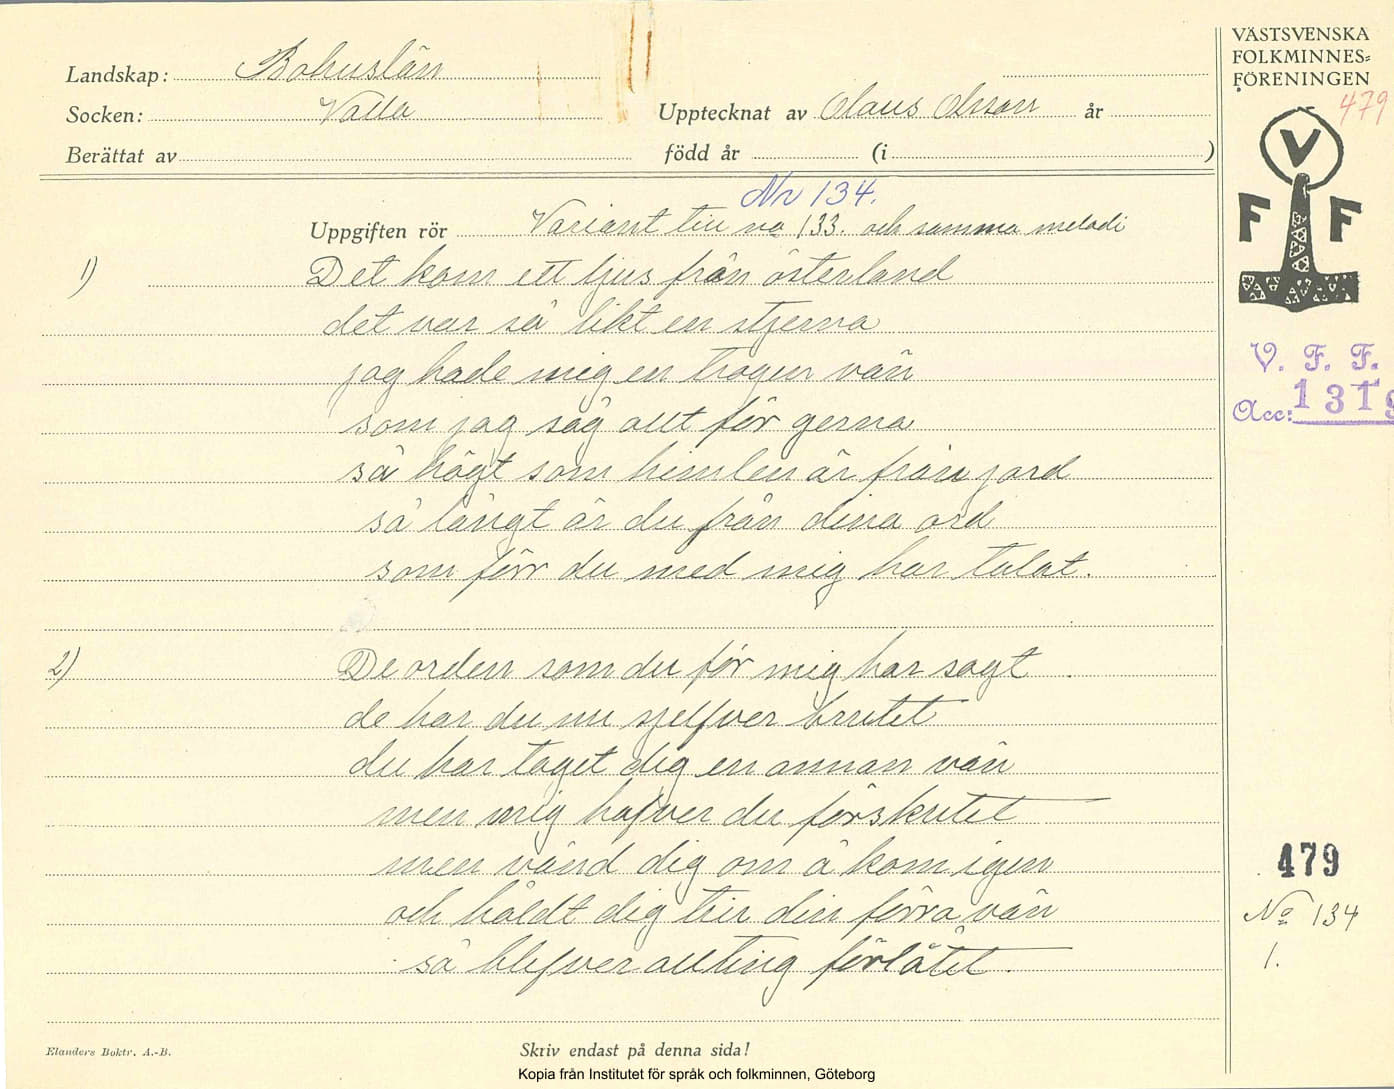 Landskap: Bohuslän
Socken: Valla
Upptecknat av Olaus Olsson år
Berättat av
född år (i )
VÄSTSVENSKA
FOLKMINNES=
FÖRENINGEN
479
V
F F
V. F. F.
Acc: 1319
Nr 134.
Uppgiften rör Variant till no 133. och samma melodi
1) Det kom ett ljus från österland
det var så likt en stjerna
jag hade mig en trogen vän
som jag såg allt för gerna
så högt som himlen är från jord
så långt är du från dina ord
som förr du med mig har talat.
2) De orden som du för mig har sagt
de har du nu sjelfver brutet
du har taget dig en annan vän
men mig hafver du förskutet
men vänd dig om å kom igen
och håldt dig till din förra vän
så blefver allting förlåtet.
479
No 134
1.
Elanders Boktr. A.-B.
Skriv endast på denna sida!
Kopia från Institutet för språk och folkminnen, Göteborg